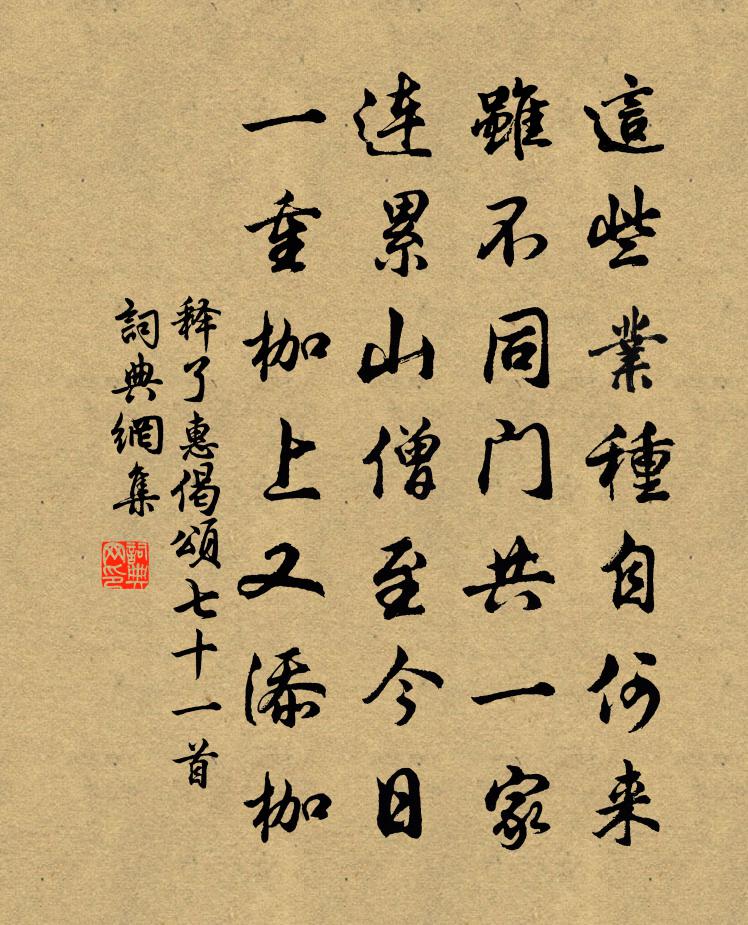 這些業種自何来
雖不同门共一家
連累山僧至今日
一重枷上又添枷
释了惠偈頌七十一首
詞典網集
詞典网印